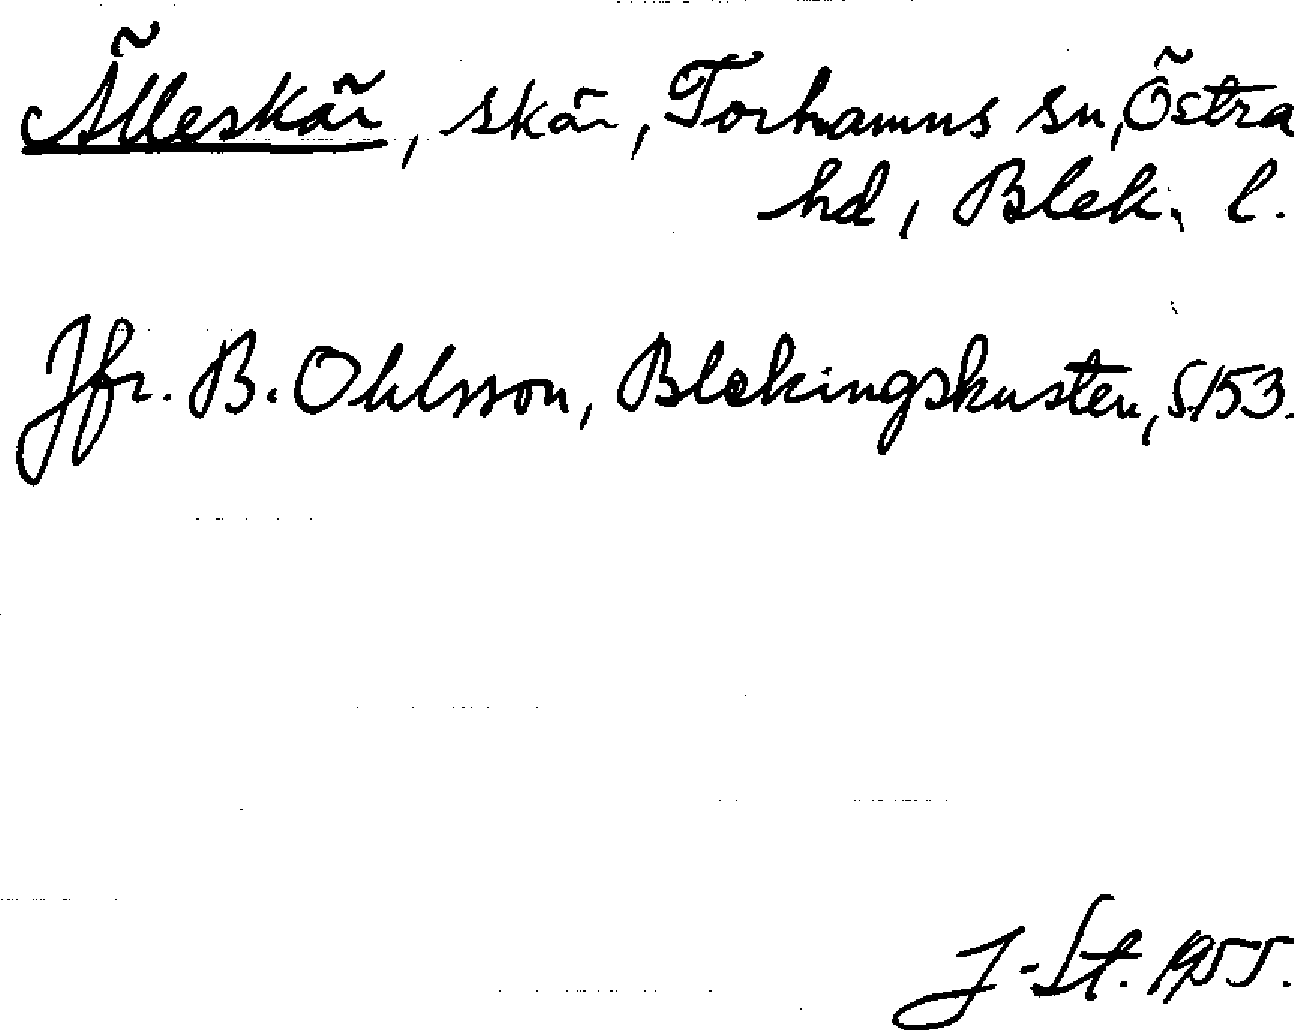 Älleskär, skär, Torhamns sn, Östra
hd, Blek. l.
Jfr. B. Ohlsson, Blekingskusten, s. 153.
J-St. 1955.